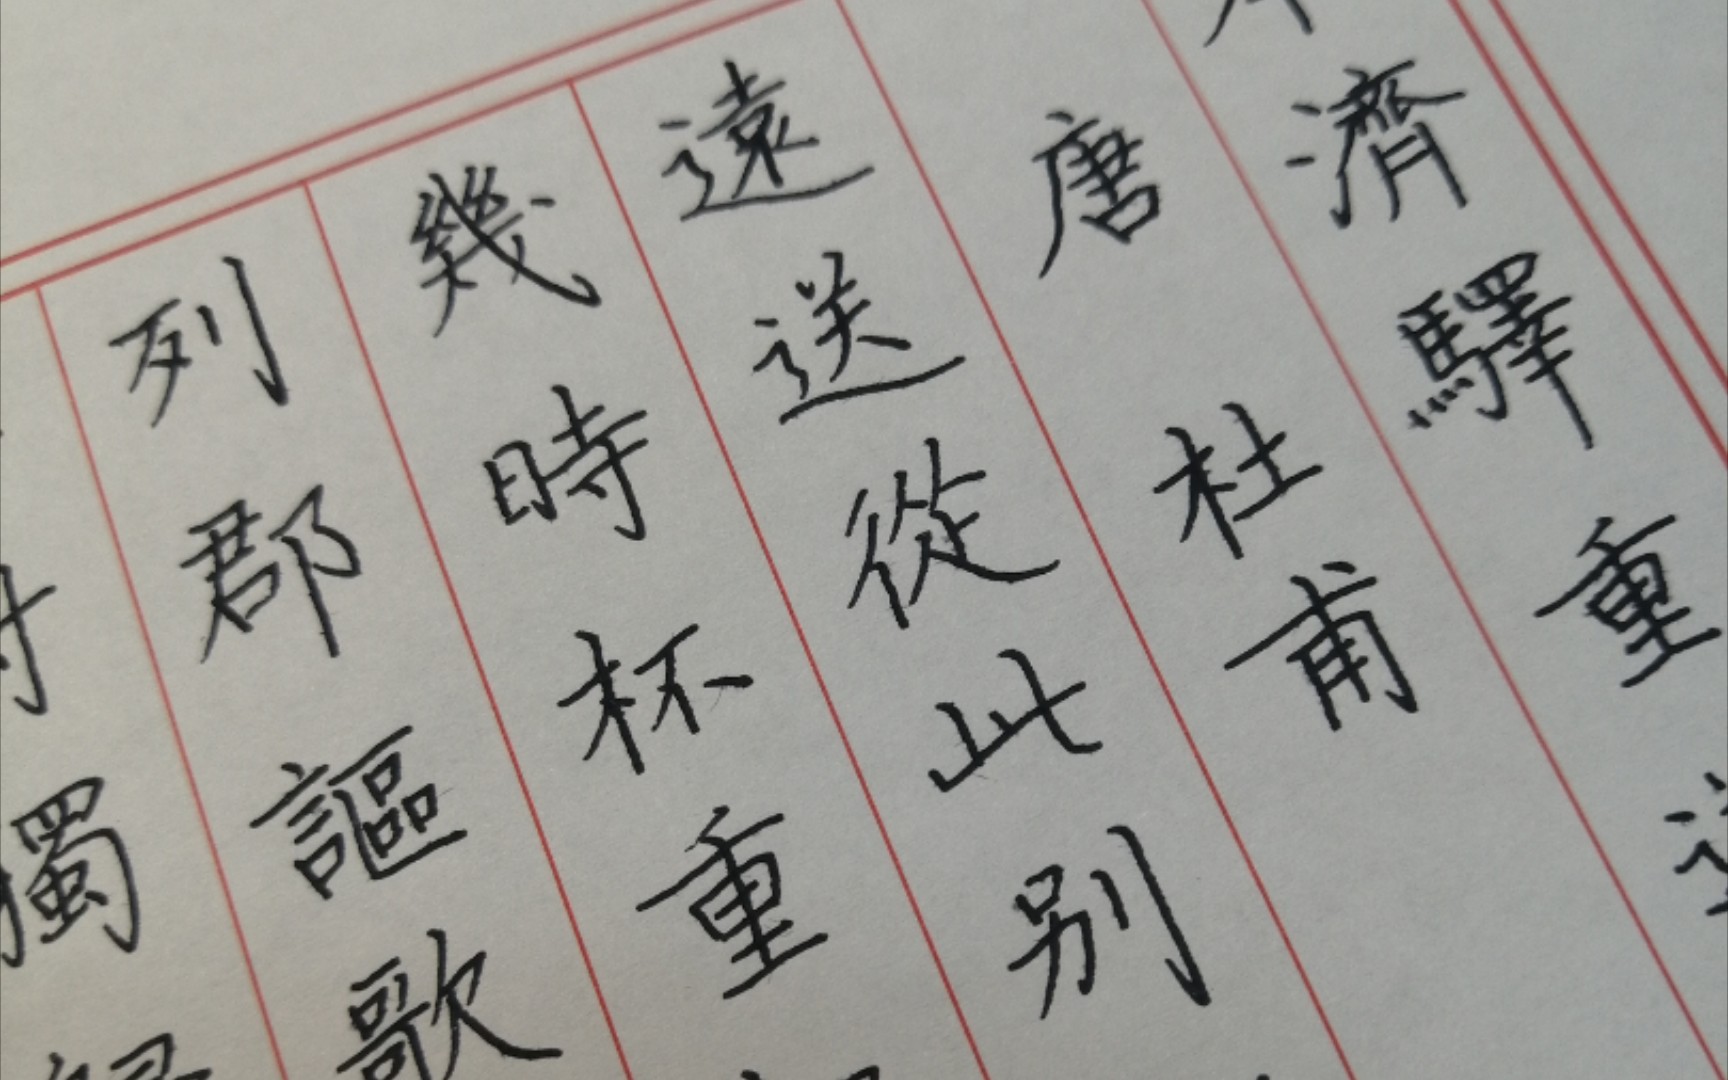 濟驛重送
唐 杜甫
遠送從此別
幾時杯重
列郡謳歌
獨